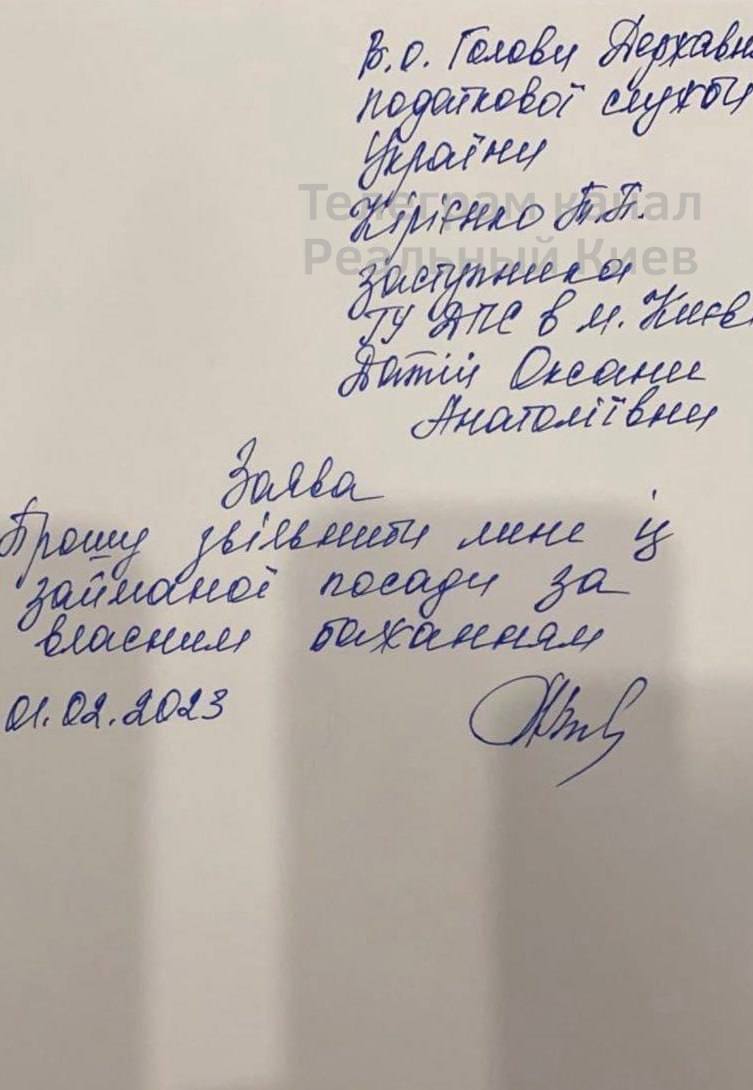 В.о. Голови Державн
податкової служби
України
Телеграм канал
Кірієнко Т.Т.
Реальный Киев
заступника
ГУ ДПС в м. Києв
Датій Оксани
Анатоліївни
Заява
Прошу звільнити мене із
займаної посади за
власним бажанням
01.02.2023